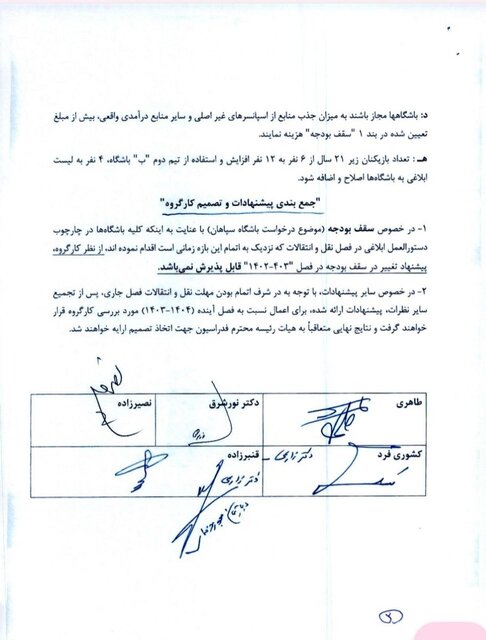 د: باشگاهها مجاز باشند به میزان جذب منابع از اسپانسرهای غیر اصلی و سایر منابع درآمدی واقعی، بیش از مبلغ
تعیین شده در بند ۱ "سقف بودجه" هزینه نمایند.
هـ: تعداد بازیکنان زیر ۲۱ سال از ۶ نفر به ۱۲ نفر افزایش و استفاده از تیم دوم "ب" باشگاه، ۴ نفر به لیست
ابلاغی به باشگاه‌ها اصلاح و اضافه شود.
"جمع بندی پیشنهادات و تصمیم کارگروه"
۱- در خصوص سقف بودجه (موضوع درخواست باشگاه سپاهان) با عنایت به اینکه کلیه باشگاه‌ها در چارچوب
دستورالعمل ابلاغی در فصل نقل و انتقالات که نزدیک به اتمام این بازه زمانی است اقدام نموده اند، از نظر کارگروه،
پیشنهاد تغییر در سقف بودجه در فصل "۴۰۳-۱۴۰۲" قابل پذیرش نمی‌باشد.
۲- در خصوص سایر پیشنهادات، با توجه به در شرف اتمام بودن مهلت نقل و انتقالات فصل جاری، پس از تجمیع
سایر نظرات، پیشنهادات ارائه شده، برای اعمال نسبت به فصل آینده (۱۴۰۴-۱۴۰۳) مورد بررسی کارگروه قرار
خواهند گرفت و نتایج نهایی متعاقباً به هیات رئیسه محترم فدراسیون جهت اتخاذ تصمیم ارایه خواهند شد.
طاهری دکتر نورشرق نصیرزاده
کشوری فرد دکتر زارعی قنبرزاده
دکتر زارعی
۲